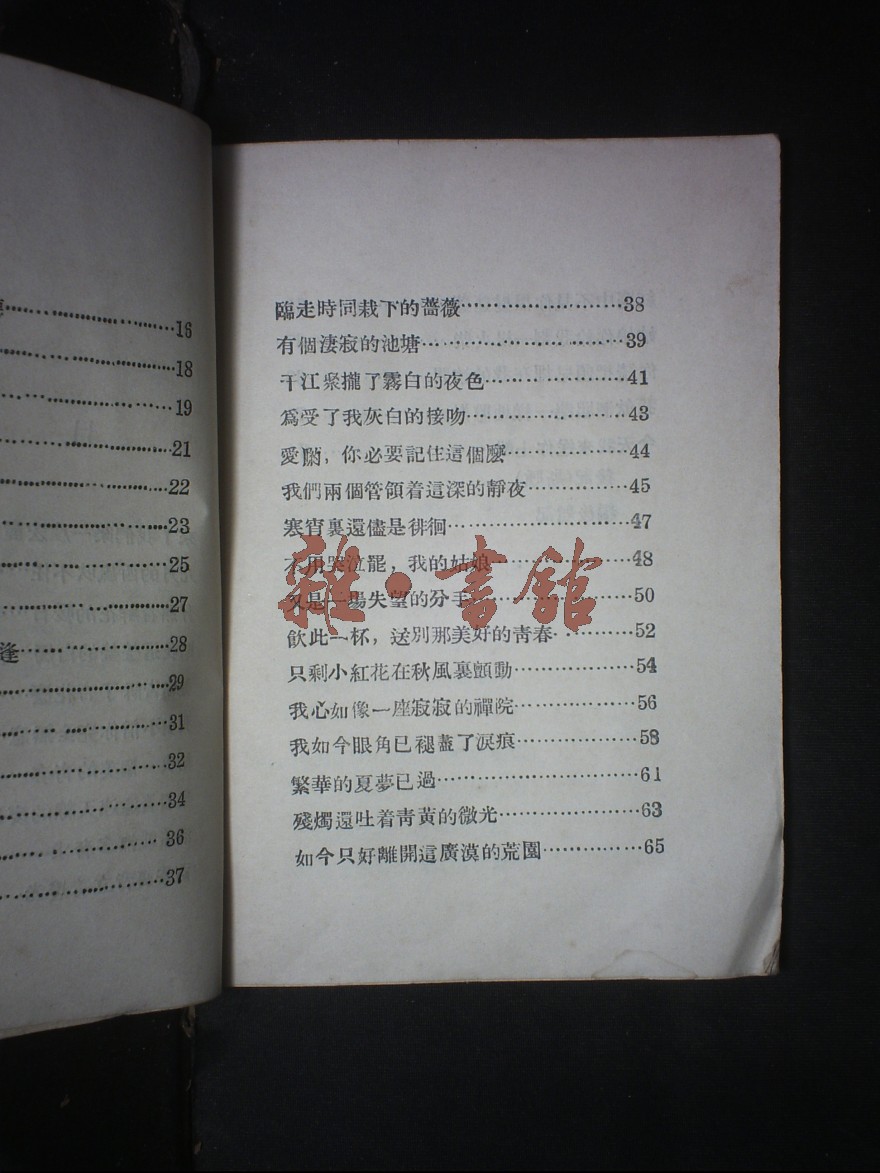 16
18
19
21
22
23
25
27
逢 28
29
31
32
34
36
37
臨走時同栽下的薔薇………………38
有個淒寂的池塘………………39
干江聚攏了霧白的夜色………………41
爲受了我灰白的接吻………………43
愛閼，你必要記住這個麽………………44
我們兩個管領着這深的靜夜………………45
寒宵裏還儘是徘徊………………47
不用哭泣罷，我的姑娘………………48
又是一場失望的分手………………50
飲此一杯，送別那美好的靑春………………52
只剩小紅花在秋風裏顫動………………54
我心如像一座寂寂的禪院………………56
我如今眼角已褪蓋了淚痕………………58
繁華的夏夢已過………………61
殘燭還吐着靑黃的微光………………63
如今只好離開這廣漠的荒園………………65
雜·書館